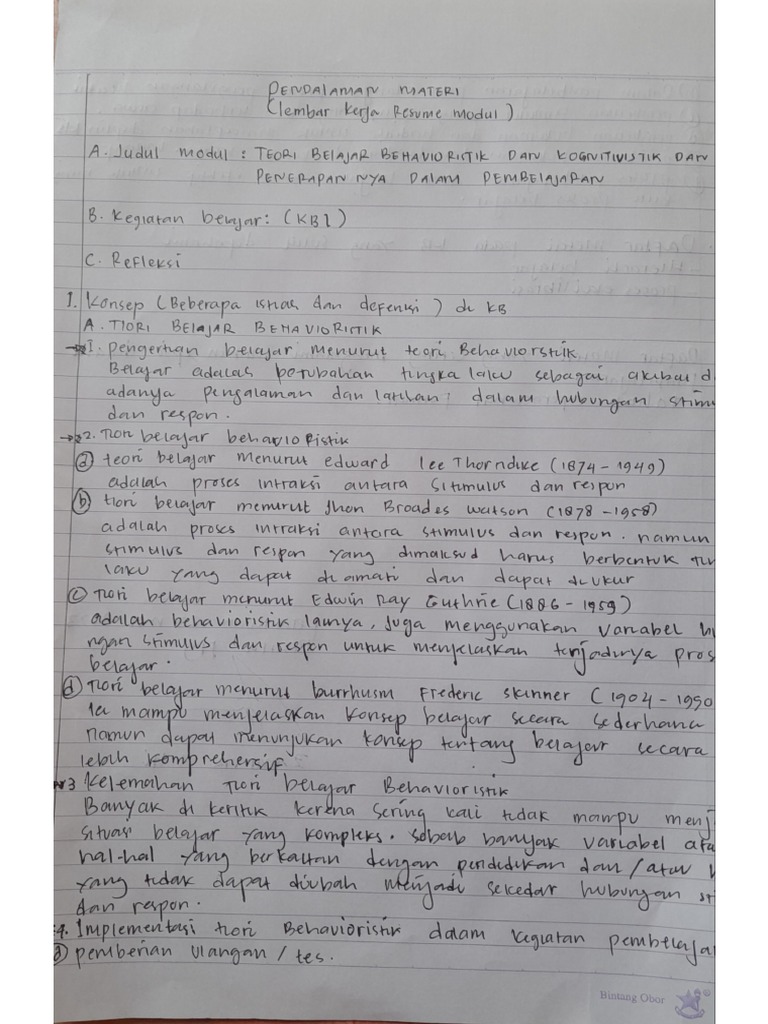 PENDALAMAN MATERI
(lembar kerja Resume modul)
A. Judul modul : TEORI BELAJAR BEHAVIORITIK DAN KOGNITIVISTIK DAN
PENERAPAN NYA DALAM PEMBELAJARAN
B. Kegiatan belajar: (KB1)
C. Refleksi
1. Konsep (Beberapa istilah dan defenisi) di KB
A. TIORI BELAJAR BEHAVIORITIK
1. pengertian belajar menurut teori Behaviorstik
Belajar adalas perubahan tingka laku sebagai akibat d
adanya pengalaman dan latihan, dalam hubungan stimu
dan respon.
2. Tiori belajar behavioristik
a teori belajar menurut edward lee Thorndike (1874-1949)
adalah proses intraksi antara Stimulus dan respon
b tiori belajar menurut Jhon Broades watson (1878-1958)
adalah proses intraksi antara stimulus dan respon. namun
stimulus dan respon yang dimaksud harus berbentuk tin
laku yang dapat di amati dan dapat diukur
c Tiori belajar menurut Edwin Ray Guthrie (1886-1959)
adalah behavioristik lainya, Juga menggunakan variabel hu
ngan stimulus dan respon untuk menjelaskan terjadinya pros
belajar.
d Tiori belajar menurut burrhusm Frederic skinner (1904-1990
Ia mampu menjelaskan konsep belajar secara sederhana
namun dapat menunjukan konsep tentang belajar secara
lebih komprehensif
3 Kelemahan Tiori belajar Behavioristik
Banyak di keritik kerena sering kali tidak mampu menj
situasi belajar yang kompleks. sebab banyak variabel ata
hal-hal yang berkaitan dengan pendidikan dan/atau
yang tidak dapat diubah menjadi sekedar hubungan st
dan respon.
4. Implementasi tiori Behavioristik dalam kegiatan pembelaja
a pemberian ulangan/tes.
Bintang Obor